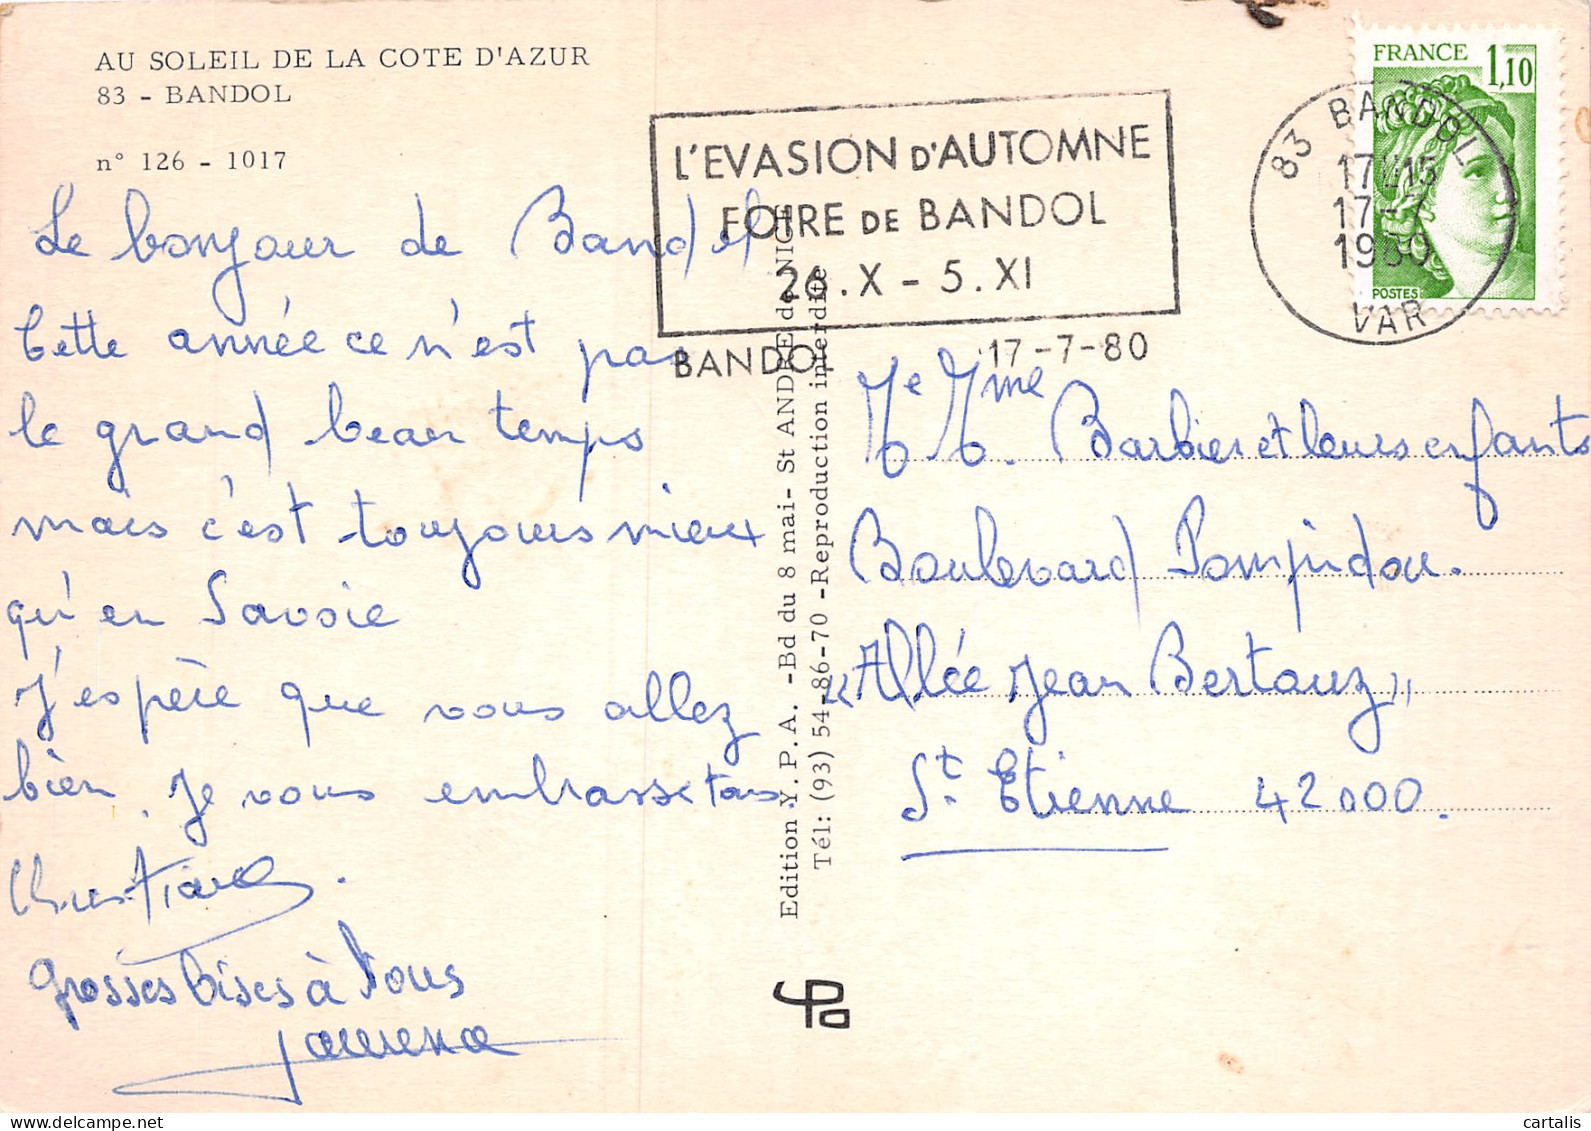 AU SOLEIL DE LA COTE D'AZUR
83 - BANDOL
n° 126 - 1017
Le bonjour de Bandol
Cette année ce n'est pas
le grand beau temps
mais c'est toujours mieux
qu'en Savoie
J'espère que vous allez
bien. Je vous embrasse tous
grosses bises à vous
L'EVASION D'AUTOMNE
FOIRE DE BANDOL
26.X - 5.XI
BANDOL 17-7-80
FRANCE 1,10
POSTES
83 BANDOL
17H15
17-7
1980
VAR
Edition Y.P.A. -Bd du 8 mai- St ANDRE de NICE
Tél: (93) 54-86-70 -Reproduction interdite
Mr et Mme Barbier et leurs enfants
Boulevard Pompidou.
"Allée Jean Bertauz"
St. Etienne 42000.
cartalis